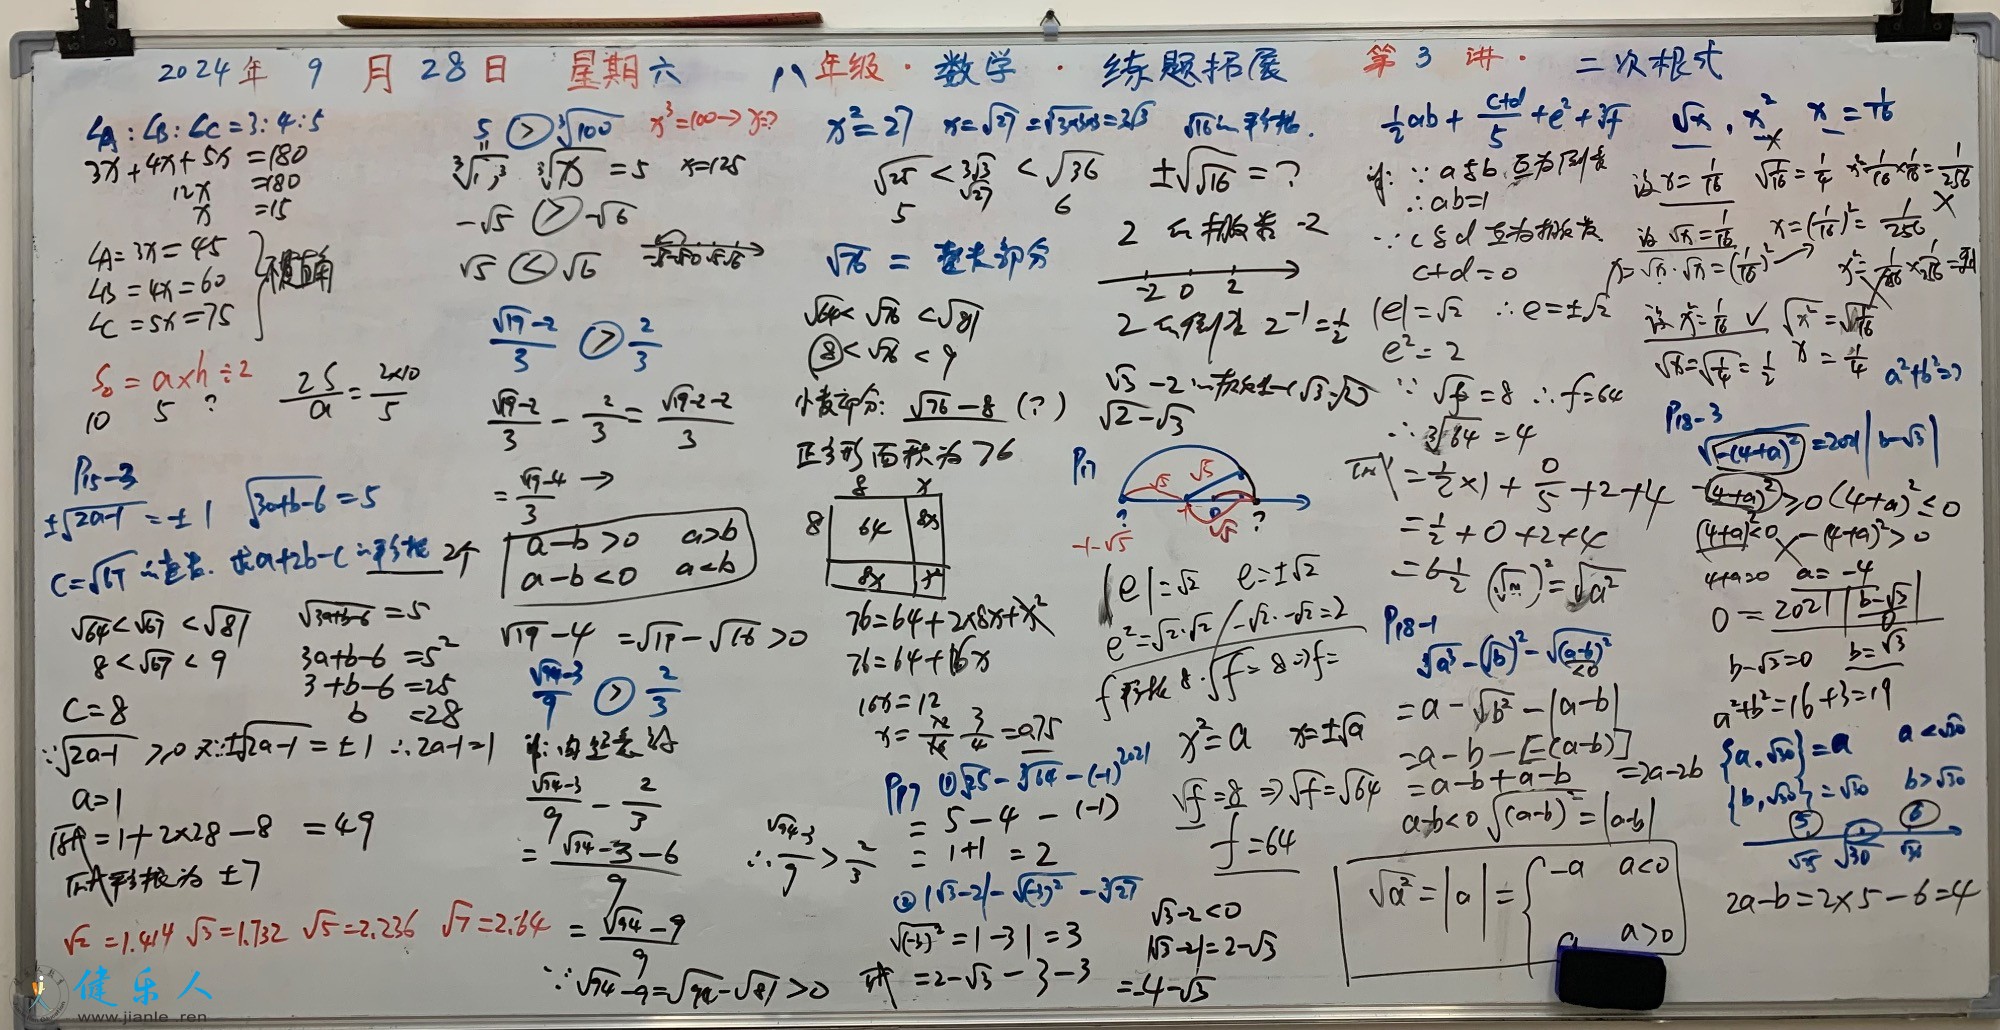 2024年 9 月 28日 星期六 八年级·数学·练题拓展 第3讲·二次根式
∠A:∠B:∠C=3:4:5
3x+4x+5x=180
12x=180
x=15
∠A=3x=45
∠B=4x=60
∠C=5x=75
=a×h÷2
10 5 ?
2S/a=2×10/5
P15-3
±√(2a-1)=±1 √(3a+b-6)=5
C=√67 a+2b-c 平方根 2个
√64<√67<√81
8<√67<9
C=8
√(3a+b-6)=5
3a+b-6=5²
3+b-6=25
b=28
∵√(2a-1)≥0 又∵±√(2a-1)=±1 ∴2a-1=1
a=1
=1+2×28-8=49
平方根为±7
√2=1.414 √3=1.732 √5=2.236 √7=2.64
5>∛100 x³=100→x=?
∛x=5 x=125
-√5>-√6
√5<√6
(√19-2)/3>2/3
(√19-2)/3-2/3=(√19-2-2)/3
=(√19-4)/3→
a-b>0 a>b
a-b<0 a<b
√19-4=√19-√16>0
(√94-3)/9>2/3
(√94-3)/9-2/3
=(√94-3-6)/9
=(√94-9)/9
∵√94-9=√94-√81>0
∴(√94-3)/9>2/3
x²=27 x=√27=√3×3×3=3√3
√25<3√3<√36
5 √27 6
√76= 整大部分
√64<√76<√81
8<√76<9
小数部分:√76-8(?)
正方形面积为76
8 x
8 64 8x
8x x²
76=64+2×8x+x²
76=64+16x
16x=12
x=12/16 3/4=0.75
P17 ①√25-∛64-(-1)²⁰²¹
=5-4-(-1)
=1+1=2
②|√3-2|-√(-3)²-∛27
√(-3)²=|-3|=3
=2-√3-3-3
=-4-√3
√3-2<0
|√3-2|=2-√3
√16 平方根.
±√√16=?
2 相反数 -2
-2 0 2
2 倒数 2⁻¹=1/2
√3-2
√2-√3
P17
√5 √5
? ?
-1-√5 √5
|e|=√2 e=±√2
e²=√2·√2/-√2·-√2=2
f 8·√f=8⇒f=
x²=a x=±√a
√f=8⇒√f=√64
f=64
1/2ab+(c+d)/5+e²+∛f
∵a与b互为倒数
∴ab=1
∵c与d互为相反数
c+d=0
|e|=√2 ∴e=±√2
e²=2
∵√f=8 ∴f=64
∴∛64=4
=1/2×1+0/5+2+4
=1/2+0+2+4
=6 1/2 (√m)²=√a²
P18-1
∛a³-(√b)²-√(a-b)²
<0
=a-√b²-|a-b|
=a-b-[-(a-b)]
=a-b+a-b =2a-2b
a-b<0 √(a-b)²=|a-b|
√a²=|a|={-a a<0
a a>0
√x,x² x=1/16
设x=1/16 √1/16=1/4 x²=1/16×1/16=1/256 ×
设√x=1/16 x=(1/16)²=1/256
x=√x·√x=(1/16)²
设x²=1/16 ✓ √x²=√1/16
√x=√1/4=1/2 x=1/4
a²+b²=?
P18-3
√-(4+a)²=2021|b-√3|
-(4+a)²≥0 (4+a)²≤0
(4+a)²<0 × -(4+a)²>0
4+a=0 a=-4
0=2021|b-√3|
0
b-√3=0 b=√3
a²+b²=16+3=19
{a,√30}=a a<√30
{b,√30}=√30 b>√30
5 6
√25 √30 √36
2a-b=2×5-6=4
健乐人
www.jianle.ren